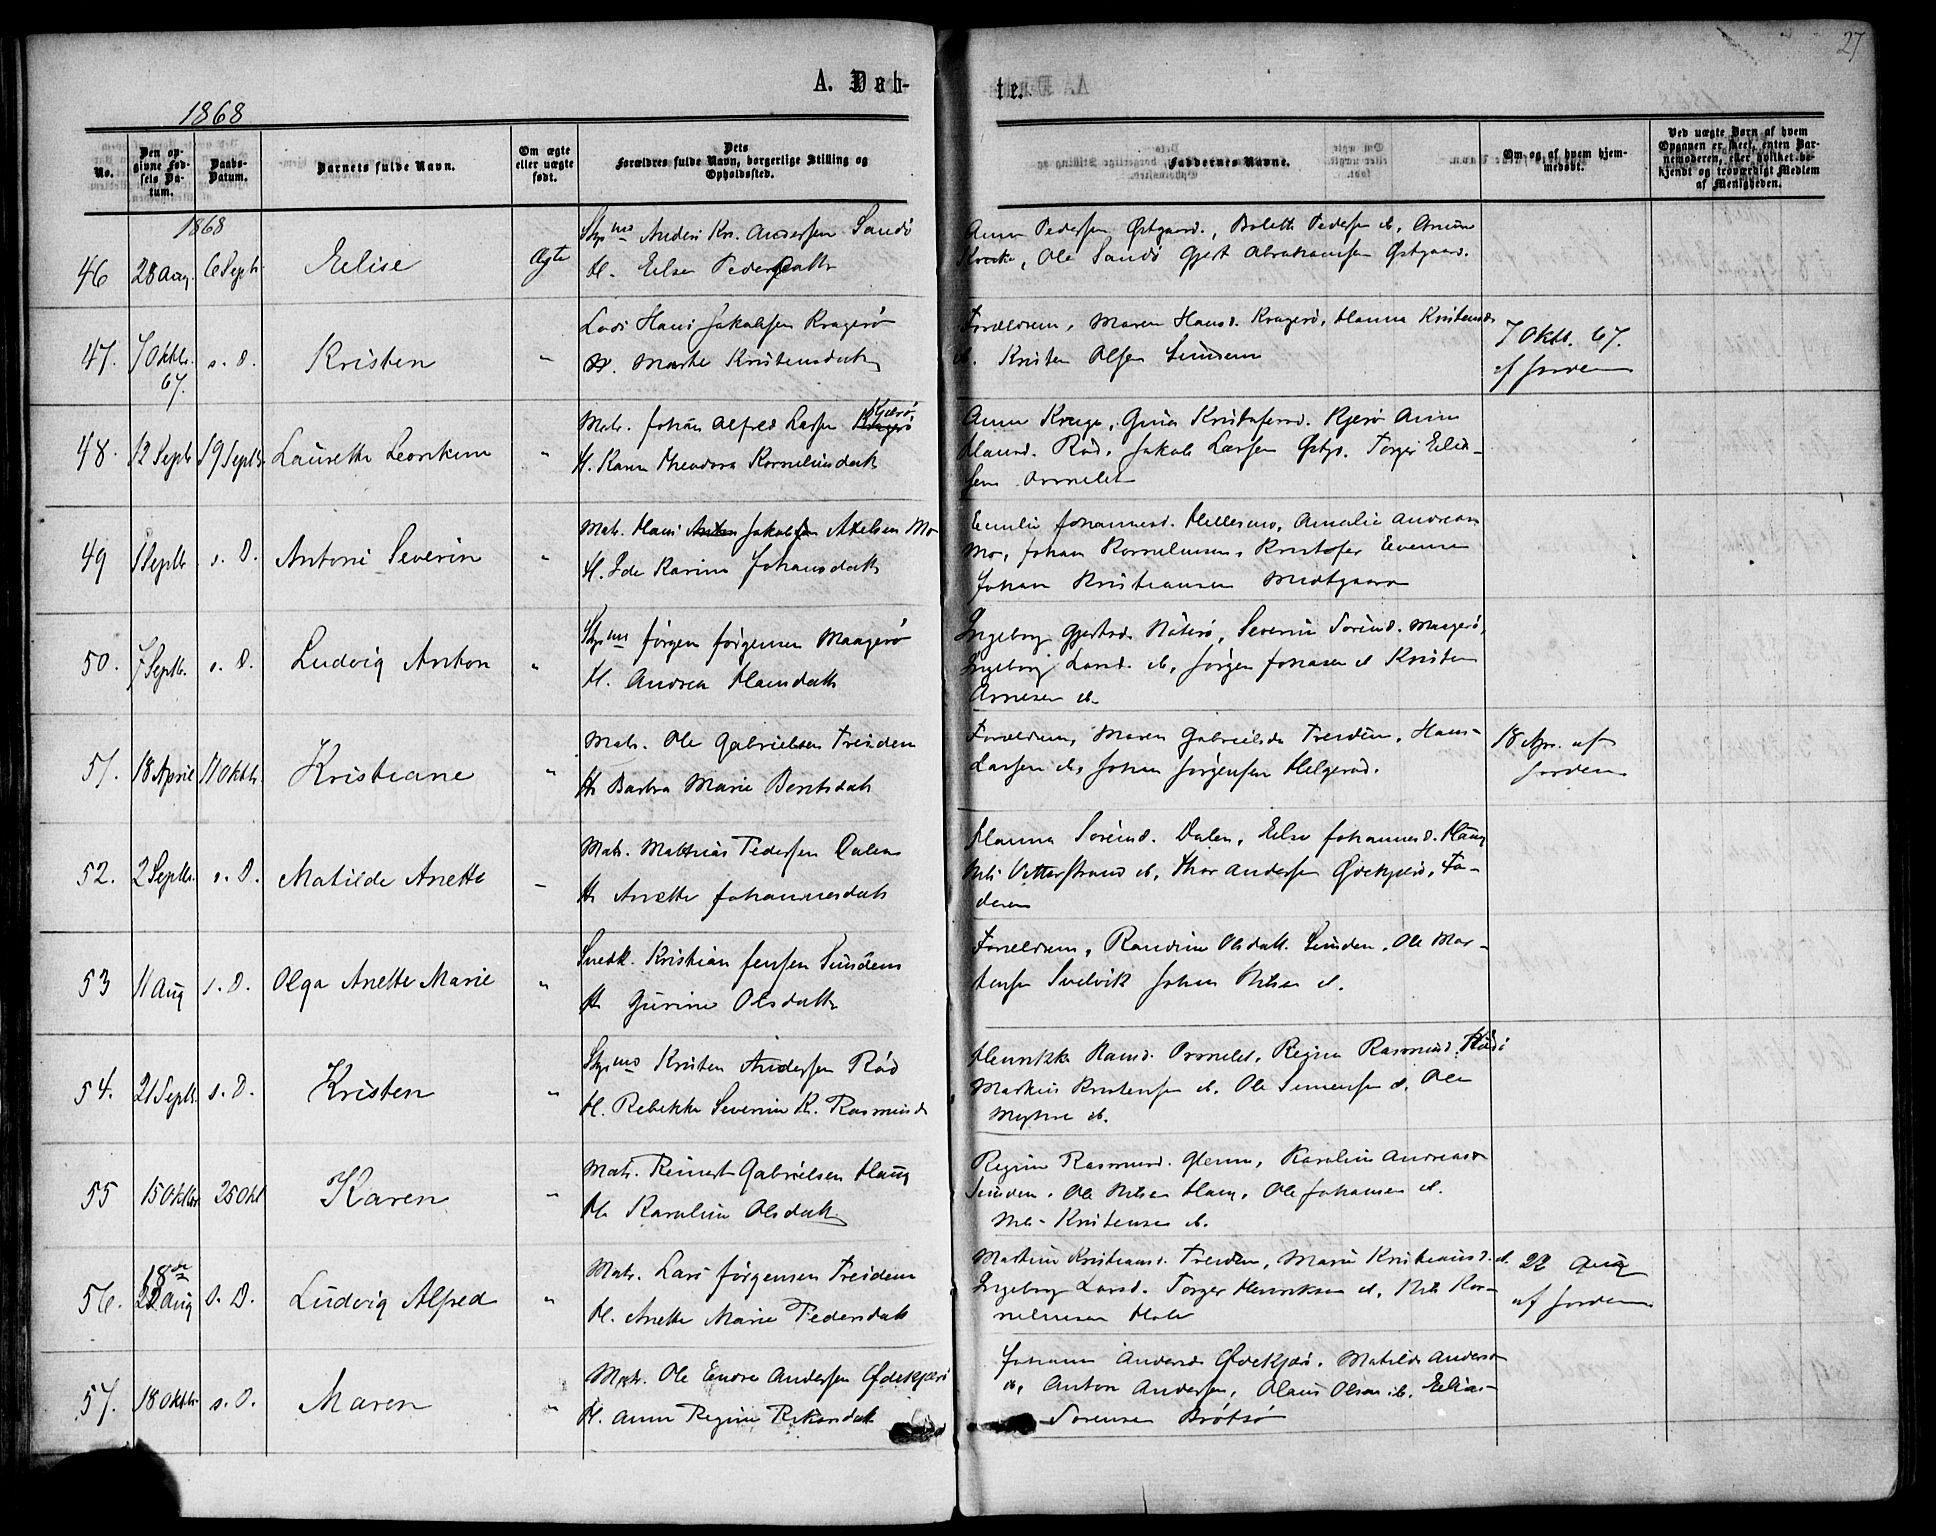 27
A. Dab-
te.
1868
No.
Den op-
givne Fød-
sels Da-
tum.
Daabs-
Datum.
Barnets fulde Navn.
Om ægte
eller uægte
født.
Dets
Forældres fulde Navn, borgerlige Stilling og
Opholdssted.
Faddernes Navne.
Om og af hvem hjem-
medøbt.
Ved uægte Børn af hvem
Opgaven er skeet, enten Bar-
nemoderen, eller hvilket be-
kjendt og troværdigt Medlem
af Menigheden.
1868
46 28 Aug. 6 Septb. Eelise Ægte
Anders Kr. Andersen Sandø
H. Else Pedersdatter
Anne Pedersen Østgaard, Bolette Pedersen ib,
Ole Sandø Gjert Abrahamsen Østgaard.
47. 7 Oktb. 67. s. D. Kristen "
Lods Hans Jakobsen Kragerø
H. Marte Kristensdatter
Forældrene, Maren Hansd. Kragerø, Hanna Kristensd.
ib. Kristen Olsen Sunden
7 Oktb. 67.
af Jordem
48. 12 Septb 19 Septb. Laurette Leonkine "
Matr. Johan Alfred Larsen Kjærø
H. Karen Theodora Korneliusdatt
Rød, Jakob Larsen Østg. Torger Eilert-
sen
49 1 Septb s. D. Antoni Severin "
Matr. Hans Jakob Axelsen Mo
H. Ida Karine Johansdatt
Emilie Johannesd. Amalie Andreas
Mo, Johan Kornelius, Kristofer Evensen
Johan Kristiansen Midtgaard
50. 7 Septb. s. D. Ludvig Anton "
Jørgen Jørgensen Maagerø
H. Andrea Hansdatt
Ingeborg Gjertsd. Nøterø, Severin Sørensd. Maagerø,
Ingeborg Larsd. ib, Jørgen Jonasen ib Kristen
Arnesen ib.
51. 18 April 11 Oktb. Kristiane "
Matr. Ole Gabrielsen Treidene
H. Barbra Marie Berntsdatt
Forældrene, Maren Gabrielsd. Treidene, Hans
Larsen ib, Johan Jørgensen Helgerød.
18 Apr. af
Jordem
52. 2 Septb. s. D. Matilde Anette "
Matr. Mathias Pedersen Dalen
H. Anette Johannesdatt
Hanna Sørensd. Dalen, Else Johannesd. Haug
Nils Vetterstrand ib, Thor Andersen Ødekjærø, Fa-
deren
53 11 Aug s. D. Olga Anette Marie "
Snedk. Kristian Jensen Sundene
H. Gurine Olsdatt
Forældrene, Randine Olsdatt. Sunden. Ole Mor-
tensen Suelvik Johan Nilsen ib.
54. 21 Septb. s. D. Kristen "
Kristen Andersen Rød
H. Rebekka Severine K. Rasmusd
Henrikke Hansd. Regine Rasmusd. Rød
Markus Kristensen ib. Ole Simensen ib. Ole
Myhre ib.
55 15 Oktbr 25 Okt Karen "
Matr. Reinert Gabrielsen Haug
H. Karoline Olsdatt
Regine Rasmusd. Glenne, Karoline Andreasd
Sunden. Ole Nilsen Haug, Ole Johansen ib.
Nils Kristensen ib.
56. 18de 22 Aug s. D. Ludvig Alfred "
Matr. Lars Jørgensen Treidene
H. Anette Marie Pedersdatt
Martine Kristiansd. Treiden, Marie Kristiansd. ib.
Ingeborg Larsd. Torger Henriksen ib, Nils Kor-
neliusen Holte
22 Aug
af Jordem
57. 18 Oktb. s. D. Maren "
Matr. Ole Endre Andersen Ødekjærø
H. Anne Regine
Johanne Andersd Ødekjærø. Matilde Andersd
ib, Anton Andersen, Olaus Olsen ib. Elias
Sorensen Brøtsø